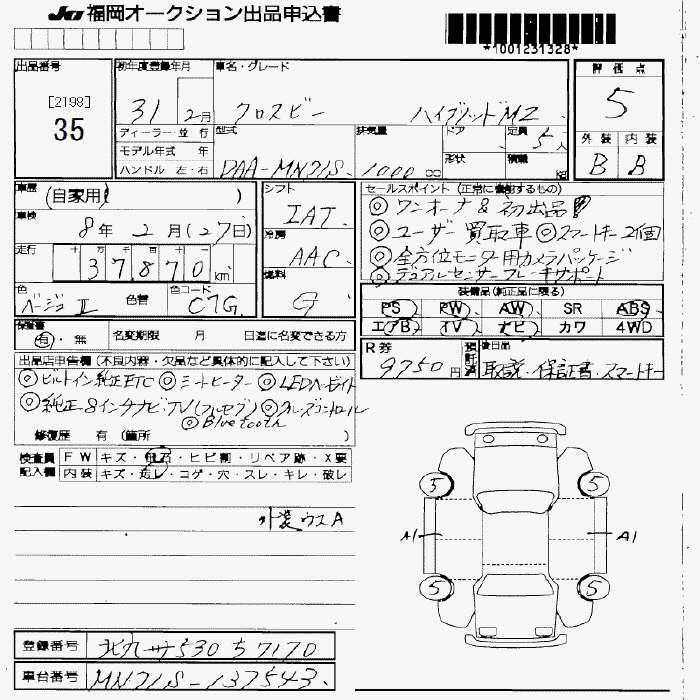 JU 福岡オークション出品申込書
*1001231328*
出品番号
[2198]
35
初年度登録年月
31 2月
車名・グレード
クロスビー ハイブリッドMZ
評価点
5
ディーラー・並行
モデル年式 年
ハンドル 左・右
型式
DAA-MN71S
排気量
1000 cc
ドア
形状
定員
5人
積載
kg
外装 内装
B B
車歴
(自家用 )
車検
8年 2月(27日)
走行
十万千百十
37870 km
色
ベージュII
色替
色コード
C7G
シフト
IAT
冷房
AAC
燃料
G
セールスポイント (正常に機能するもの)
◎ワンオーナ&初出品!
◎ユーザー買取車◎スマートキー2個
◎全方位モニター用カメラパッケージ
◎デュアルセンサーブレーキサポート
装備品(純正品に限る)
PS PW AW SR ABS
エアB TV ナビ カワ 4WD
保証書
有・無
名変期限 月 日迄に名変できる方
R券
9750円
預託済
後日品
取説・保証書・スマートキー
出品店申告欄(不良内容・欠品など具体的に記入して下さい)
◎ビルトイン純正ETC ◎シートヒーター ◎LEDヘッドライト
◎純正8インチナビ・TV(フルセグ) ◎クルーズコントロール
◎Bluetooth
修復歴 有 (箇所
検査員 FW キズ・飛石・ヒビ割・リペア跡・X要
記入欄 内装 キズ・汚レ・コゲ・穴・スレ・キレ・破レ
外装ウスA
5 5
A1 A1
5 5
登録番号 北九州530 ち7170
車台番号 MN71S-137543